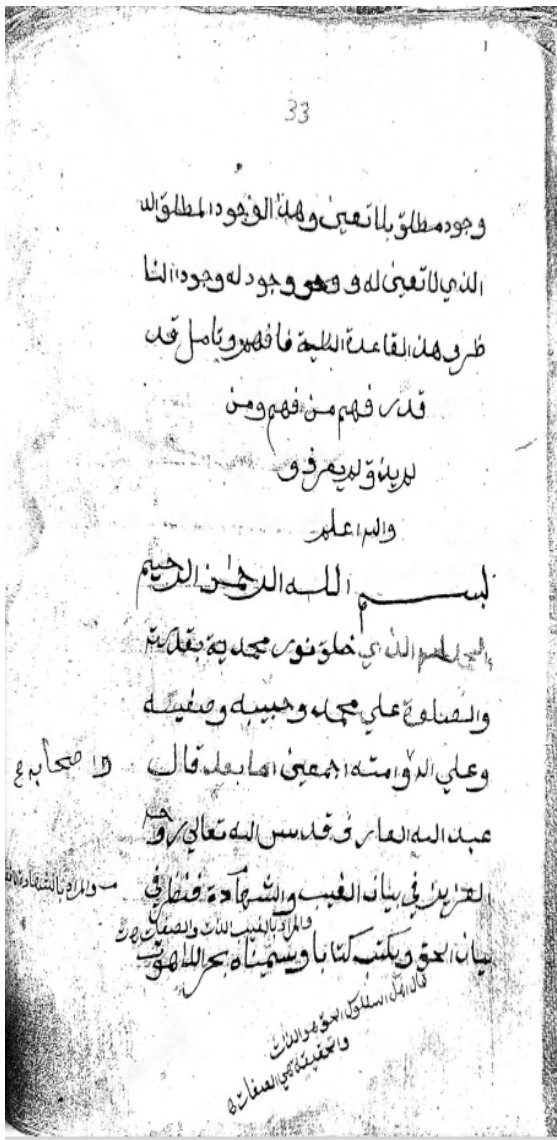 33
وجود مطلق بلا تعين وهذا الوجود المطلق الله
الذي لا تعين له و وهو وجود له وجود النا
ظر في هذ القاعدة فافهم وتامل قد
قدر فهم من فهم ومن
لم يذق لم يعرف و
والله اعلم
بسم الله الرحمن الرحيم
الحمد لله الذي خلق نور محمدية بقدرته
والصلوة علي محمد وحبيبه وصفيه
وعلي اله وامته اجمعين اما بعد قال
واصحابه
عبد الله العارف قدس الله تعالي روحه
العزيز في بيان الغيب والشهادة فنظر في
والمراد بالشهادة
والمراد بالغيب الذات والصفات
بيان الحق ويكتب كتابا ويسميناه بحر اللاهوت
قال اهل السلوك الحق هو الذات
والحقيقة هي الصفات